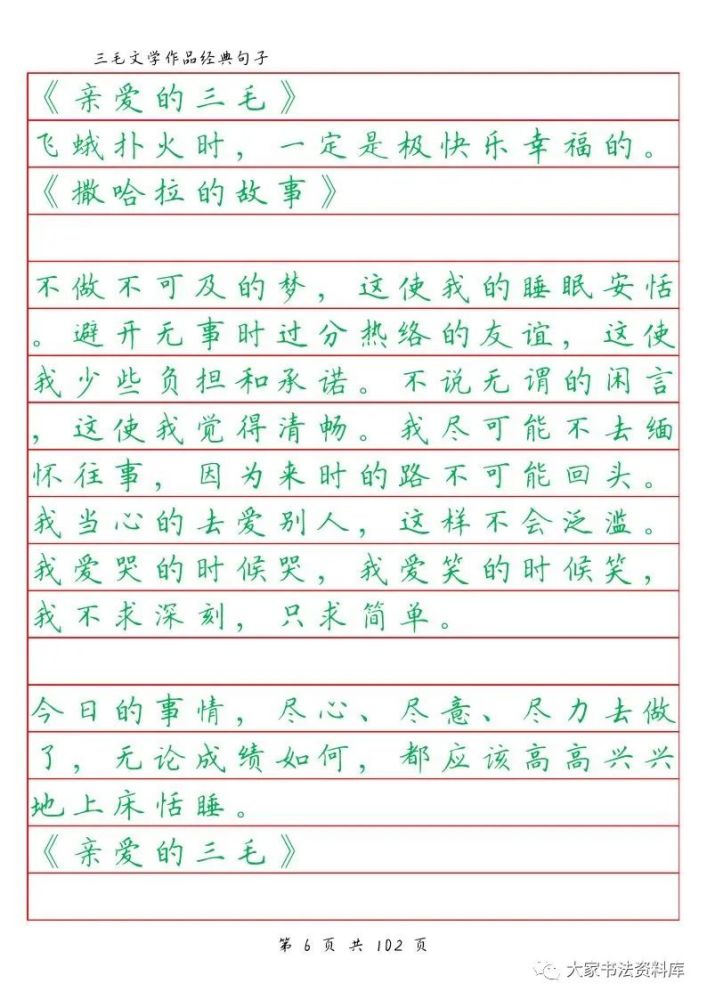 三毛文学作品经典句子
《亲爱的三毛》
飞蛾扑火时，一定是极快乐幸福的。
《撒哈拉的故事》
不做不可及的梦，这使我的睡眠安恬
。避开无事时过分热络的友谊，这使
我少些负担和承诺。不说无谓的闲言
，这使我觉得清畅。我尽可能不去缅
怀往事，因为来时的路不可能回头。
我当心的去爱别人，这样不会泛滥。
我爱哭的时候哭，我爱笑的时候笑，
我不求深刻，只求简单。
今日的事情，尽心、尽意、尽力去做
了，无论成绩如何，都应该高高兴兴
地上床恬睡。
《亲爱的三毛》
第 6 页 共 102 页
大家书法资料库